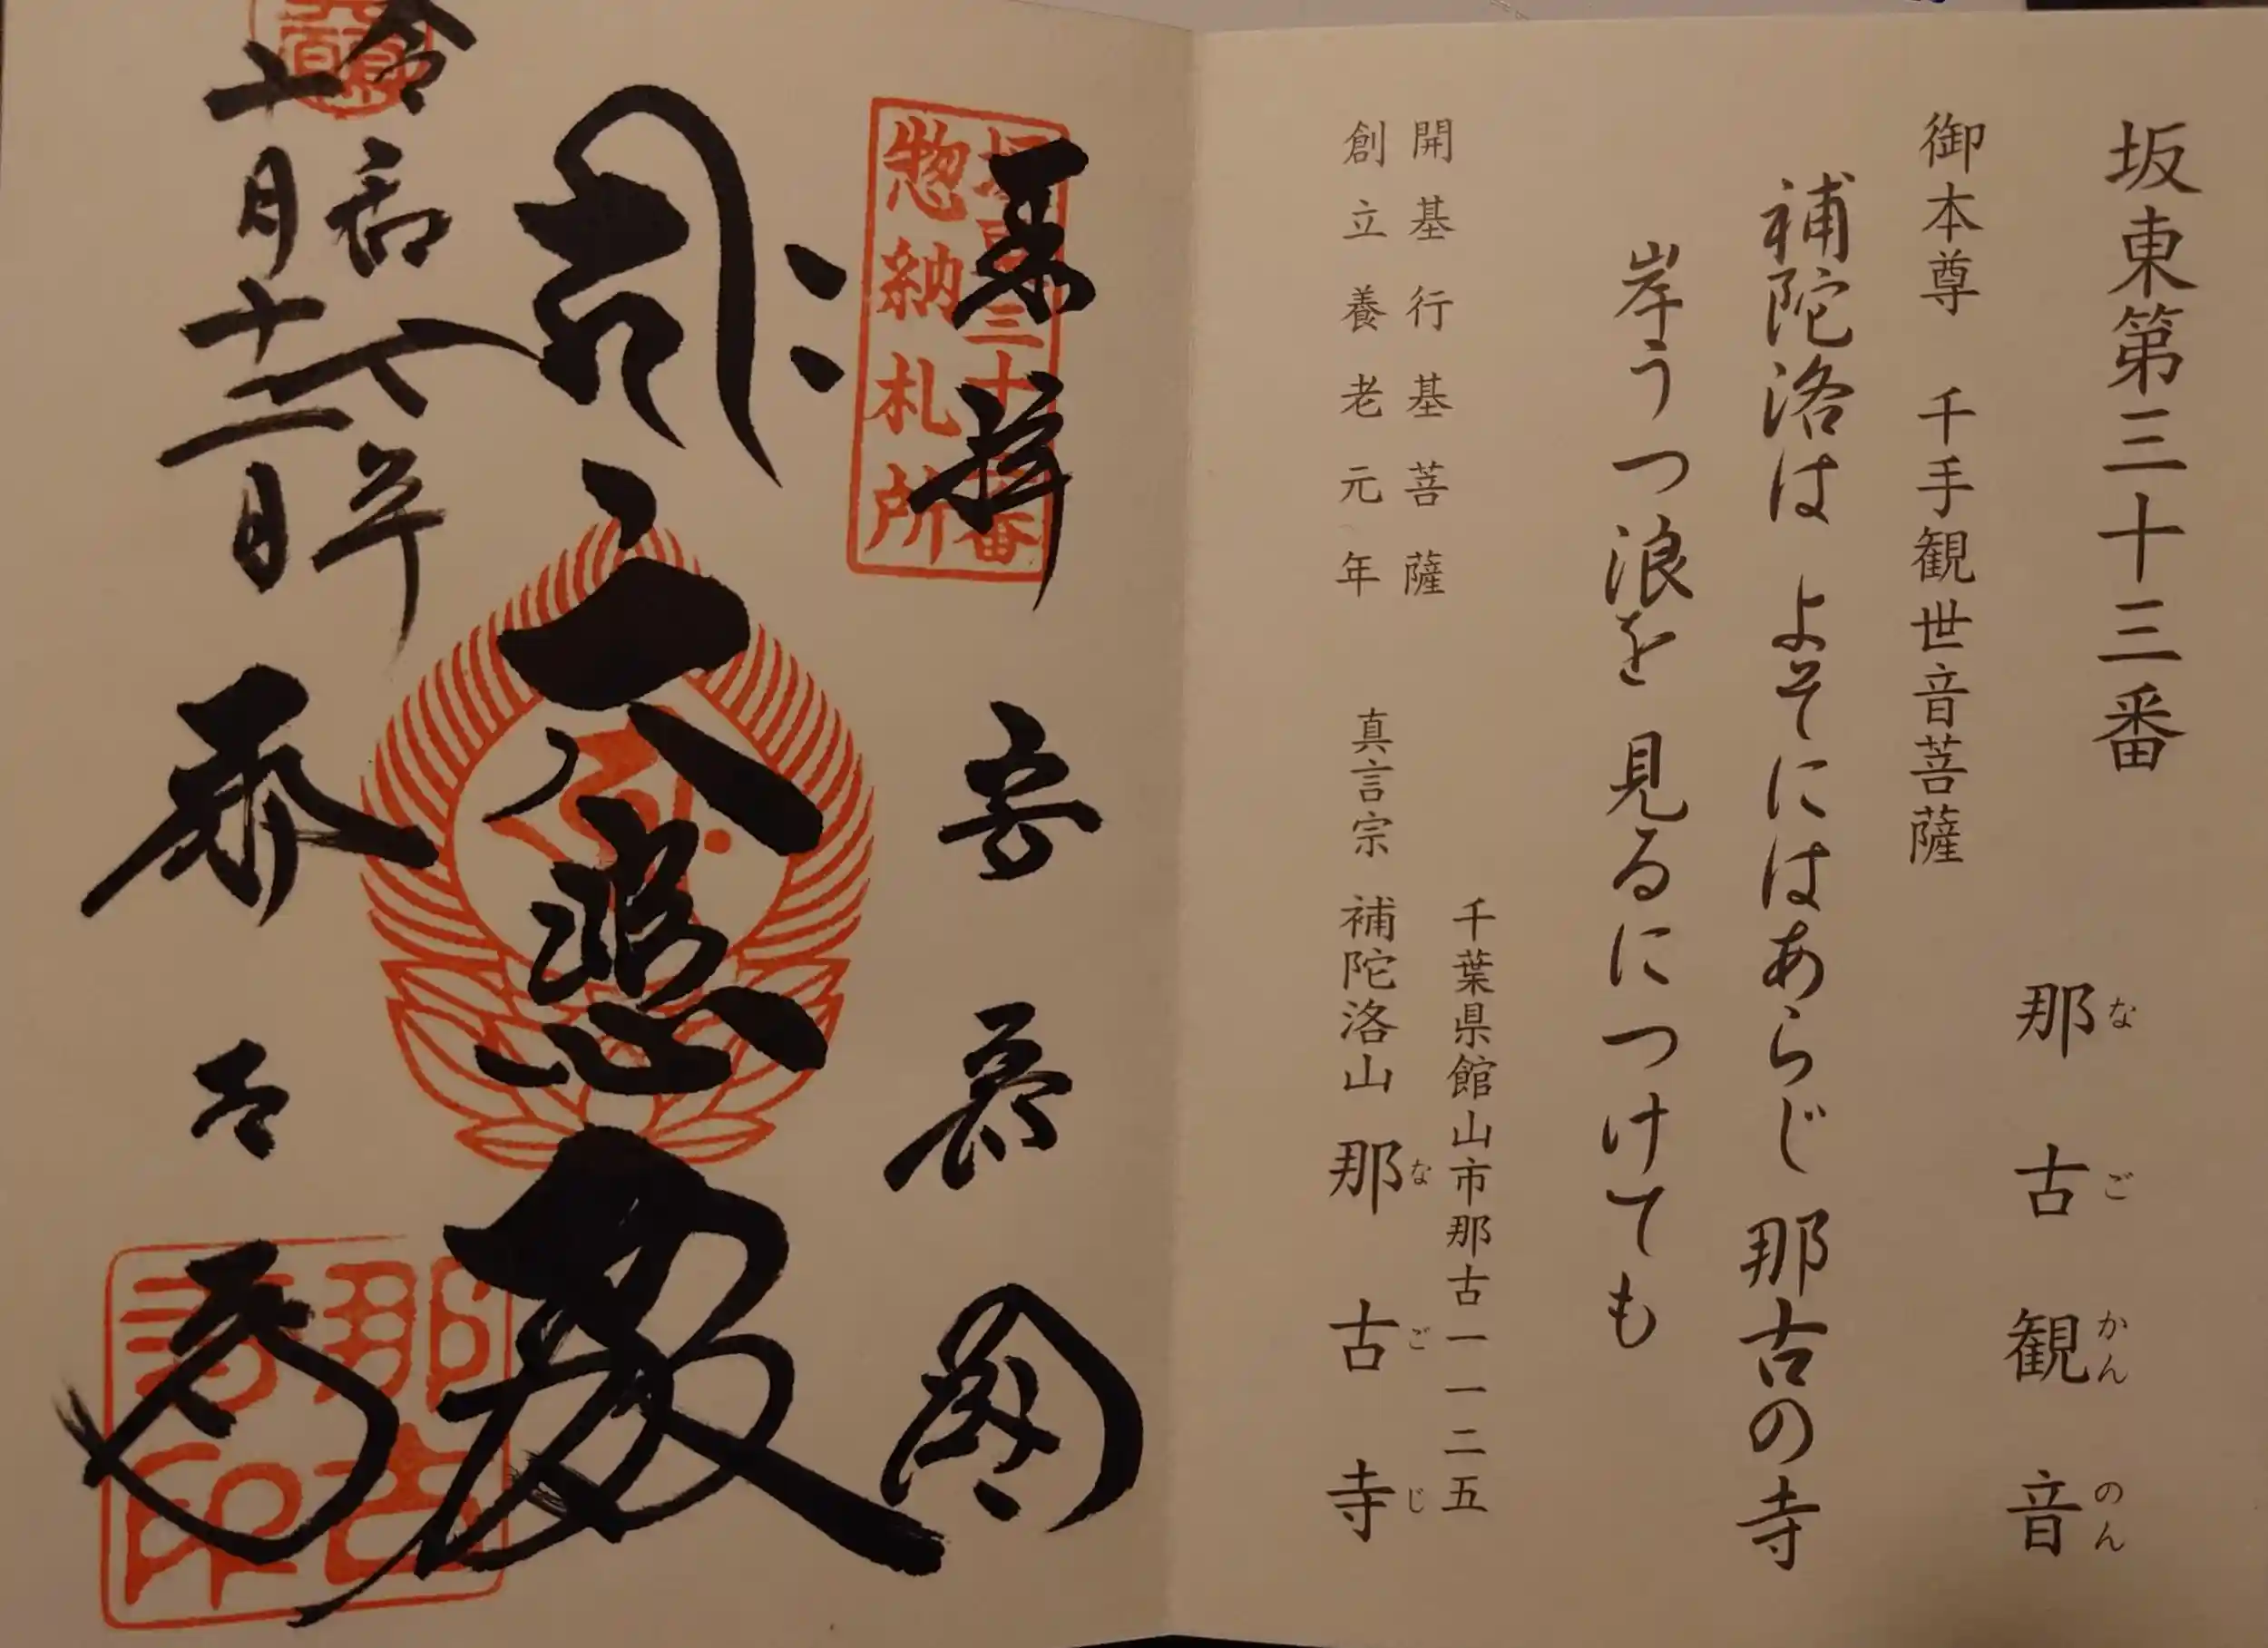 坂東第三十三番
那古観音
なごかんのん
御本尊 千手観世音菩薩
補陀洛は よそにはあらじ 那古の寺
岸うつ浪を 見るにつけても
開基行基菩薩
創立養老元年
千葉県館山市那古一一二五
真言宗 補陀洛山 那古寺
なごじ
坂東三十三番
惣納札所
奉拝 安房國
大悲殿
令和
那古寺
那古寺印